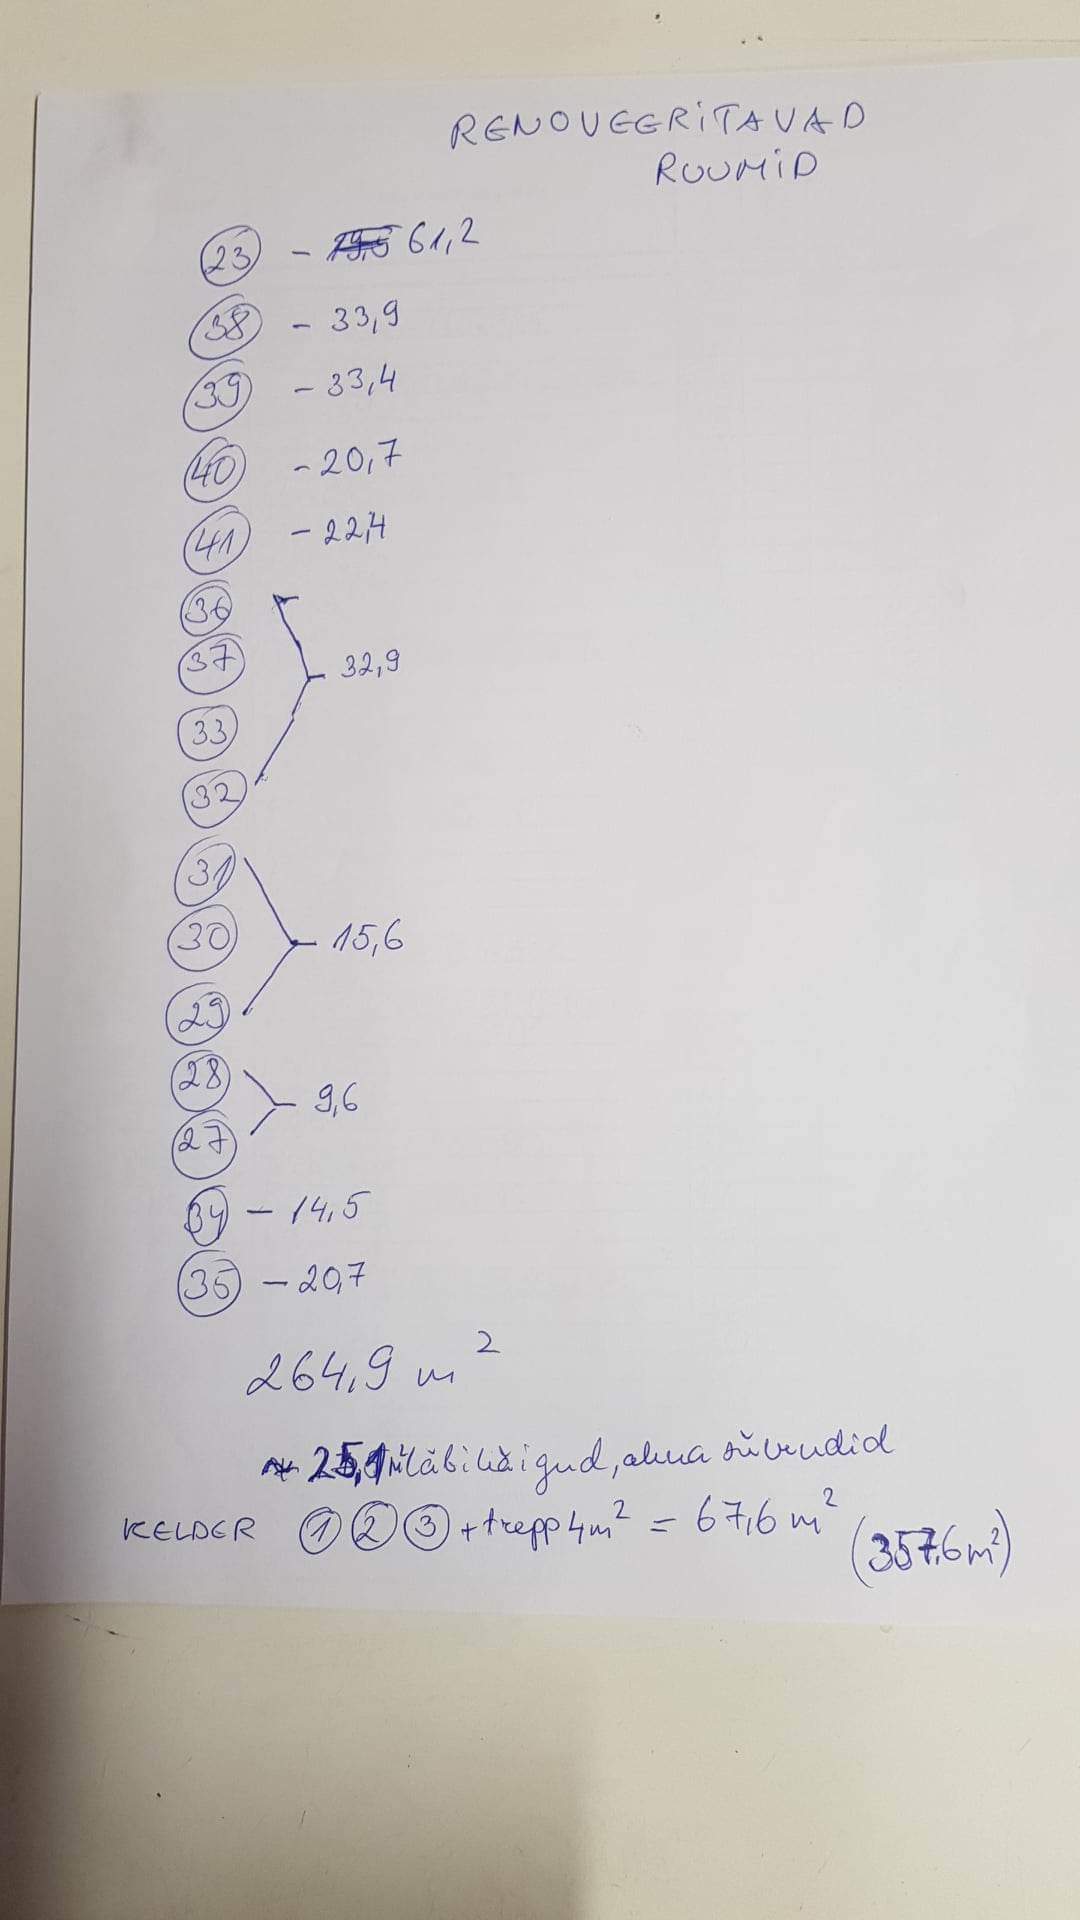 RENOVEERITAVAD
RUUMID
23 - 61,2
38 - 33,9
39 - 33,4
40 - 20,7
41 - 22,4
36
37
32,9
33
32
31
30 - 15,6
29
28
9,6
27
34 - 14,5
35 - 20,7
264,9 m²
~ 25,1 m² läbikäigud, akna süvendid
KELDER 1 2 3 + trepp 4m² = 67,6 m²
(357,6 m²)